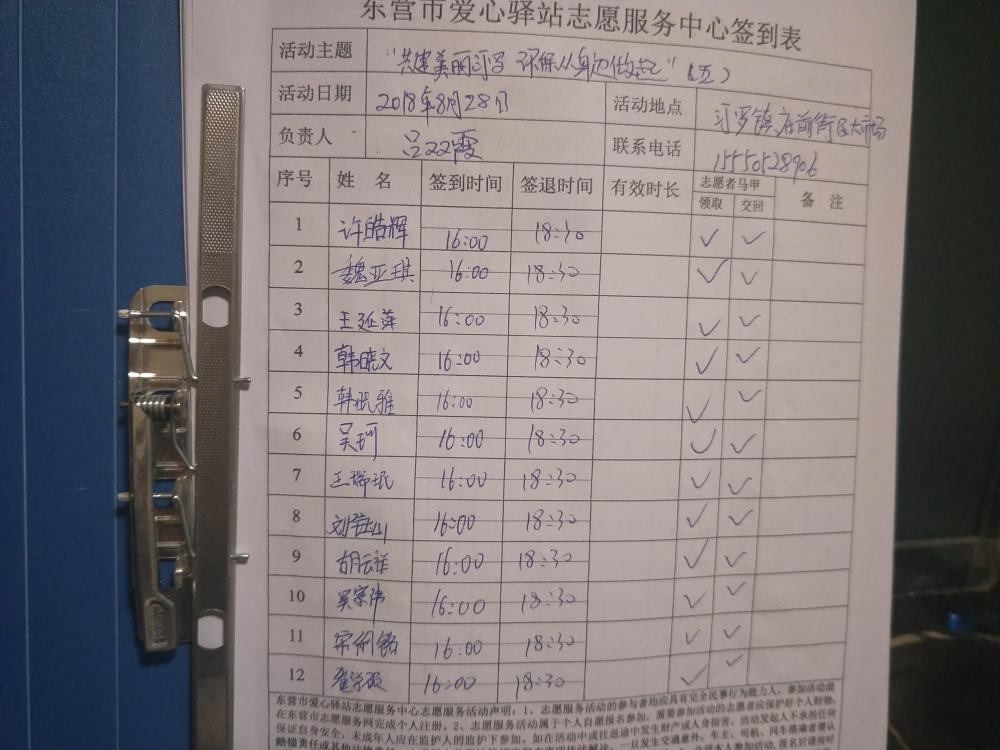 东营市爱心驿站志愿服务中心签到表
活动主题 “共建美丽河 环保从身边做起”（五）
活动日期 2018年8月28日 活动地点 镇 前街及大市场
负责人 吕双霞 联系电话 15550528906
序号 姓 名 签到时间 签退时间 有效时长 志愿者马甲 备 注
领取 交回
1 许皓辉 16:00 18:30 ✓ ✓
2 魏亚琪 16:00 18:30 ✓ ✓
3 王延萍 16:00 18:30 ✓ ✓
4 韩晓文 16:00 18:30 ✓ ✓
5 韩 雅 16:00 18:30 ✓ ✓
6 吴珂 16:00 18:30 ✓ ✓
7 王瑞珉 16:00 18:30 ✓ ✓
8 刘 山 16:00 18:30 ✓ ✓
9 胡云祥 16:00 18:30 ✓ ✓
10 吴宗 16:00 18:30 ✓ ✓
11 宋佩铭 16:00 18:30 ✓ ✓
12 16:00 18:30 ✓ ✓
东营市爱心驿站志愿服务中心志愿服务活动声明：1、志愿服务活动的参与者均应具有完全民事行为能力人，参加活动前
在东营市志愿服务网完成个人注册。2、志愿服务活动属于个人自愿报名参加，需要参加活动的志愿者应保护好个人财物，
保证自身安全，未成年人应在监护人的监护下参加。如在活动中或往返途中发生财产或人身损害，活动发起人不承担任何
赔偿责任 一旦发生交通意外，车主、司机、同车搭乘者需认